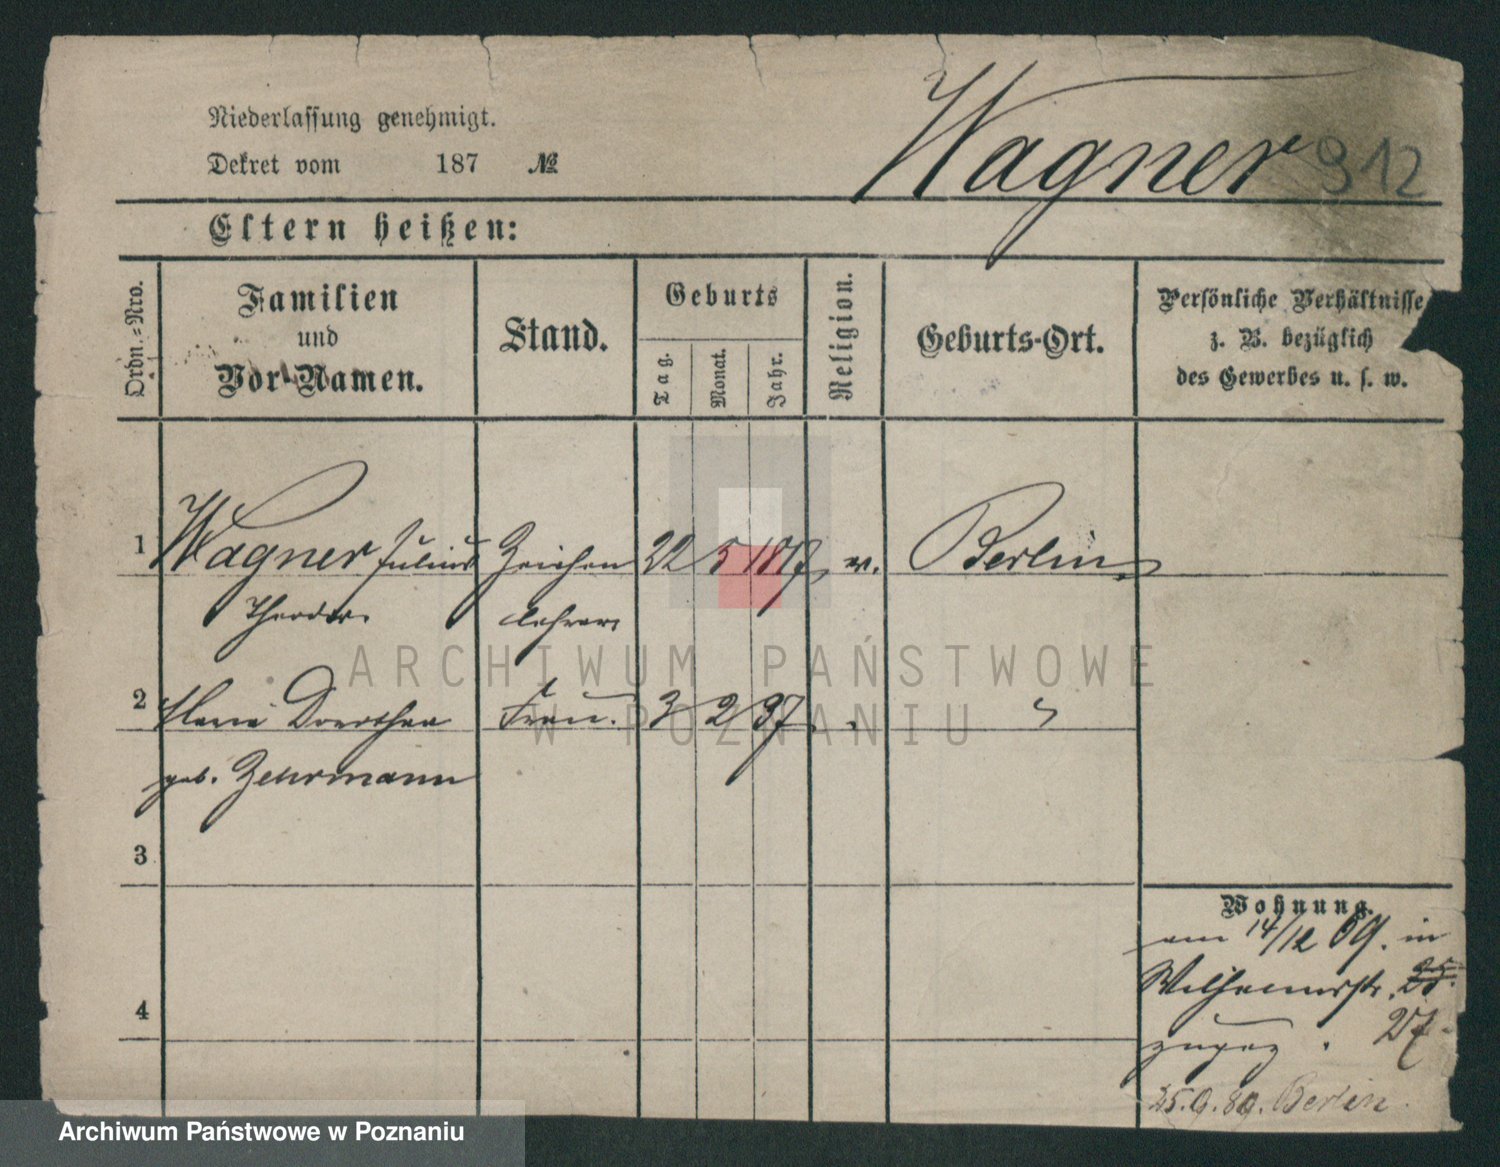 Niederlassung genehmigt.
Dekret vom 187 №
Wagner 912
Eltern heißen:
Ordn.=Nro.
Familien
und
Vor-Namen.
Stand.
Geburts
Tag.
Monat.
Jahr.
Religion.
Geburts-Ort.
Persönliche Verhältnisse
z. B. bezüglich
des Gewerbes u. s. w.
1 Wagner Julius Zeichen 22 5 1817 ev. Berlin
Theodor lehrer
2 Dorothea Frau. 3 2 37
geb.
3
Wohnung.
am 14/12 69. in
Wilhelmsstr. 25.
27.
4
25.9.80. Berlin.
ARCHIWUM PAŃSTWOWE
W POZNANIU
Archiwum Państwowe w Poznaniu